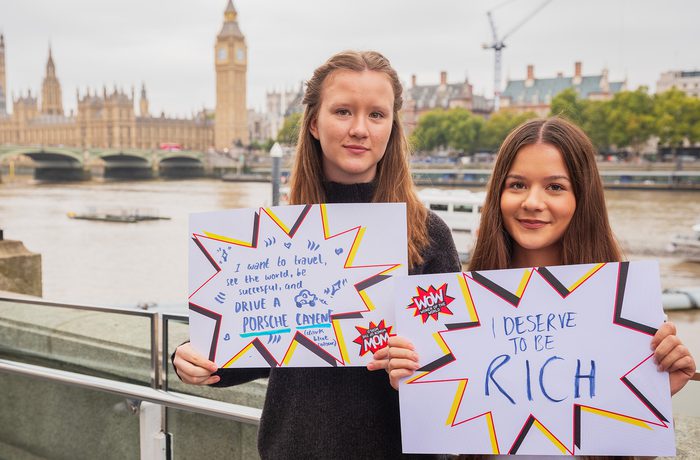 I want to travel,
see the world, be
successful, and
DRIVE A
PORSCHE CAYENE
(dark
blue
MOM
WOW
I DESERVE
TO BE
RICH